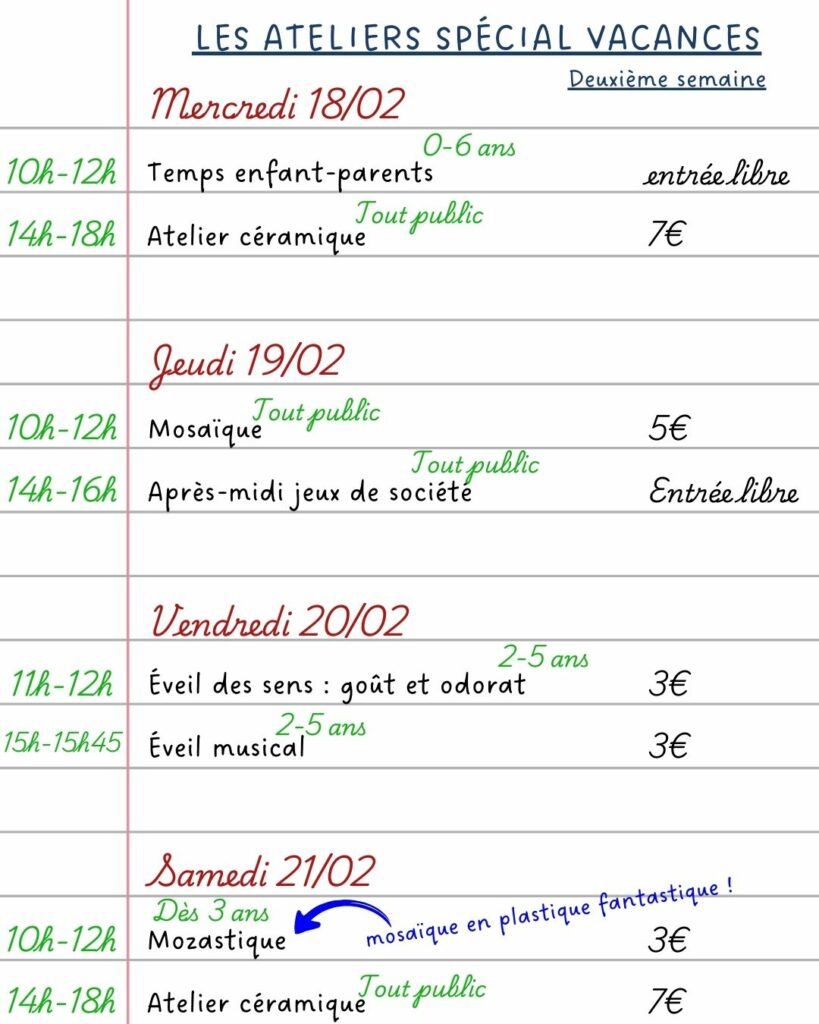 LES ATELIERS SPÉCIAL VACANCES
Deuxième semaine
Mercredi 18/02
0-6 ans
10h-12h Temps enfant-parents entrée libre
Tout public
14h-18h Atelier céramique 7€
Jeudi 19/02
Tout public
10h-12h Mosaïque 5€
Tout public
14h-16h Après-midi jeux de société Entrée libre
Vendredi 20/02
2-5 ans
11h-12h Éveil des sens : goût et odorat 3€
2-5 ans
15h-15h45 Éveil musical 3€
Samedi 21/02
Dès 3 ans
mosaïque en plastique fantastique !
10h-12h Mozastique 3€
Tout public
14h-18h Atelier céramique 7€